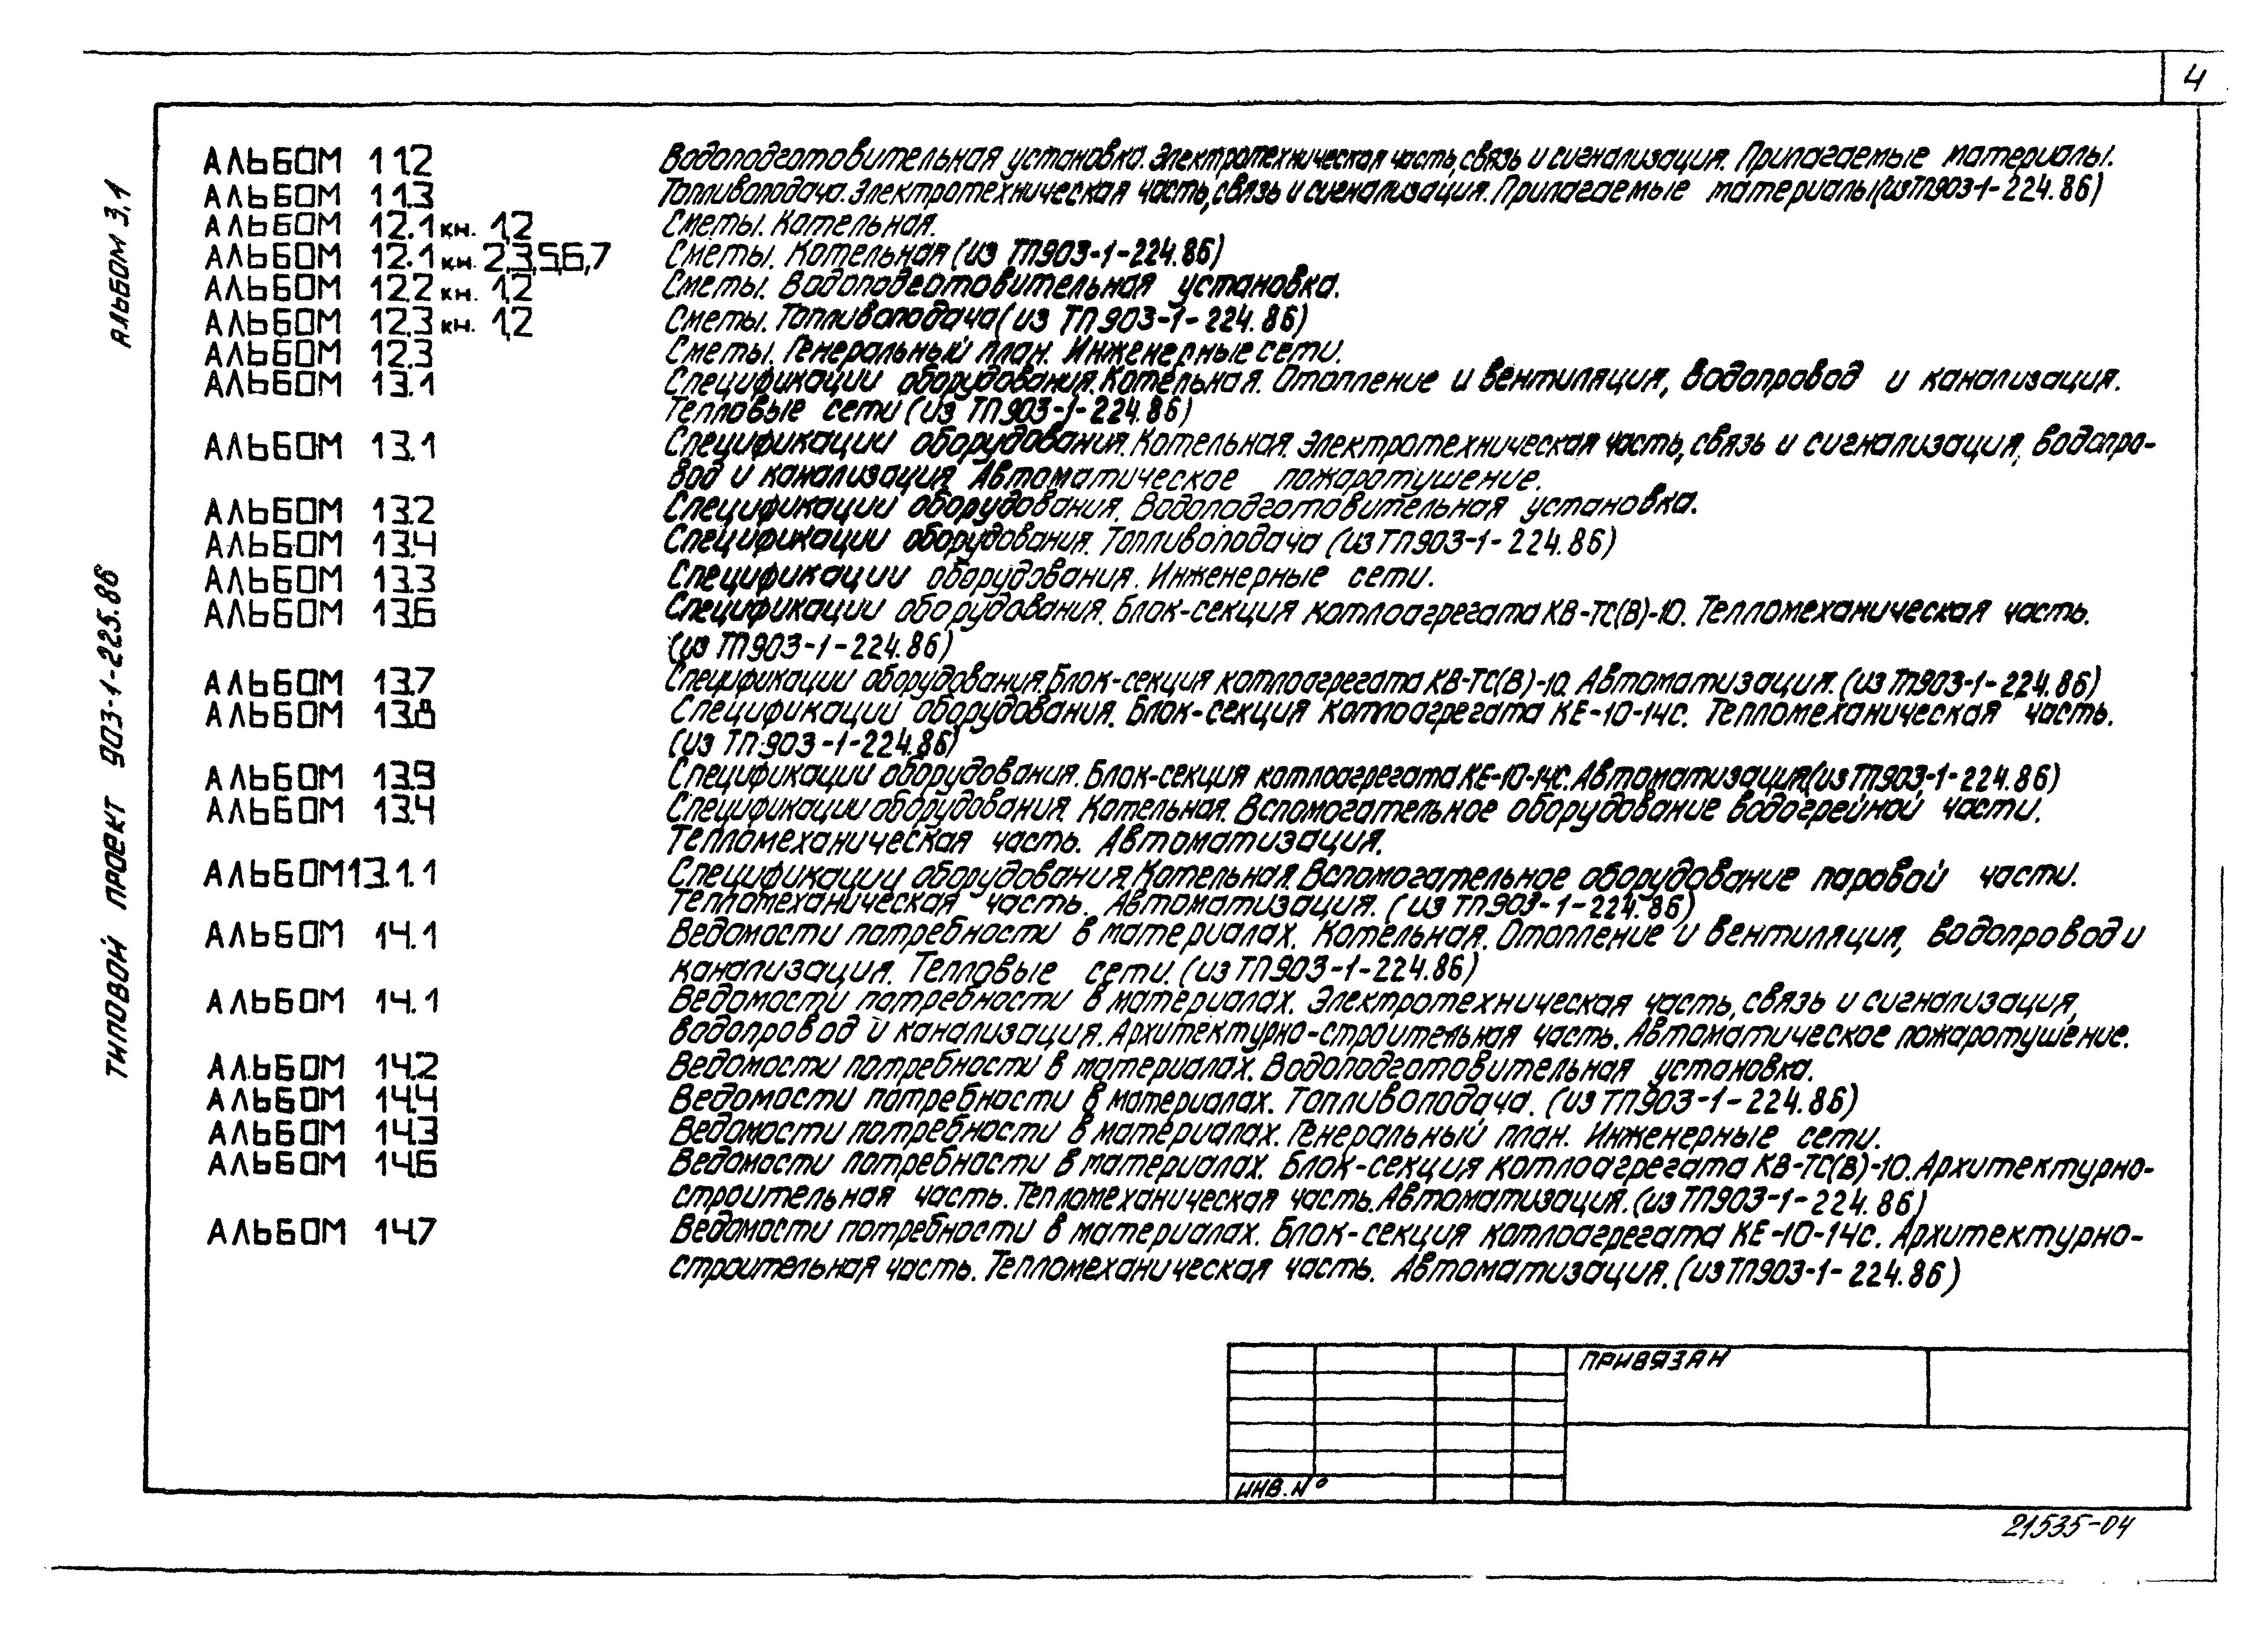 4
АЛЬБОМ 3.1
ТИПОВОЙ ПРОЕКТ 903-1-225.86
АЛЬБОМ 11.2 Водоподготовительная установка. Электротехническая часть, связь и сигнализация. Прилагаемые материалы.
АЛЬБОМ 11.3 Топливоподача. Электротехническая часть, связь и сигнализация. Прилагаемые материалы (из ТП903-1-224.86)
АЛЬБОМ 12.1 кн. 1,2 Сметы. Котельная.
АЛЬБОМ 12.1 кн. 2,3,5,6,7 Сметы. Котельная (из ТП903-1-224.86)
АЛЬБОМ 12.2 кн. 1,2 Сметы. Водоподготовительная установка.
АЛЬБОМ 12.3 кн. 1,2 Сметы. Топливоподача (из ТП903-1-224.86)
АЛЬБОМ 12.3 Сметы. Генеральный план. Инженерные сети.
АЛЬБОМ 13.1 Спецификации оборудования. Котельная. Отопление и вентиляция, водопровод и канализация.
Тепловые сети (из ТП903-1-224.86)
АЛЬБОМ 13.1 Спецификации оборудования. Котельная. Электротехническая часть, связь и сигнализация, водопро-
вод и канализация. Автоматическое пожаротушение.
АЛЬБОМ 13.2 Спецификации оборудования. Водоподготовительная установка.
АЛЬБОМ 13.4 Спецификации оборудования. Топливоподача (из ТП903-1-224.86)
АЛЬБОМ 13.3 Спецификации оборудования. Инженерные сети.
АЛЬБОМ 13.6 Спецификации оборудования. Блок-секция котлоагрегата КВ-ТС(В)-10. Тепломеханическая часть.
(из ТП903-1-224.86)
АЛЬБОМ 13.7 Спецификации оборудования. Блок-секция котлоагрегата КВ-ТС(В)-10. Автоматизация. (из ТП903-1-224.86)
АЛЬБОМ 13.8 Спецификации оборудования. Блок-секция котлоагрегата КЕ-10-14С. Тепломеханическая часть.
(из ТП903-1-224.86)
АЛЬБОМ 13.9 Спецификации оборудования. Блок-секция котлоагрегата КЕ-10-14С. Автоматизация (из ТП903-1-224.86)
АЛЬБОМ 13.4 Спецификации оборудования. Котельная. Вспомогательное оборудование водогрейной части.
Тепломеханическая часть. Автоматизация.
АЛЬБОМ 13.1.1 Спецификации оборудования. Котельная. Вспомогательное оборудование паровой части.
Тепломеханическая часть. Автоматизация. (из ТП903-1-224.86)
АЛЬБОМ 14.1 Ведомости потребности в материалах. Котельная. Отопление и вентиляция, водопровод и
канализация. Тепловые сети. (из ТП903-1-224.86)
АЛЬБОМ 14.1 Ведомости потребности в материалах. Электротехническая часть, связь и сигнализация,
водопровод и канализация. Архитектурно-строительная часть. Автоматическое пожаротушение.
АЛЬБОМ 14.2 Ведомости потребности в материалах. Водоподготовительная установка.
АЛЬБОМ 14.4 Ведомости потребности в материалах. Топливоподача. (из ТП903-1-224.86)
АЛЬБОМ 14.3 Ведомости потребности в материалах. Генеральный план. Инженерные сети.
АЛЬБОМ 14.6 Ведомости потребности в материалах. Блок-секция котлоагрегата КВ-ТС(В)-10. Архитектурно-
строительная часть. Тепломеханическая часть. Автоматизация. (из ТП903-1-224.86)
АЛЬБОМ 14.7 Ведомости потребности в материалах. Блок-секция котлоагрегата КЕ-10-14С. Архитектурно-
строительная часть. Тепломеханическая часть. Автоматизация. (из ТП903-1-224.86)
ПРИВЯЗАН
ИНВ. №
21535-04